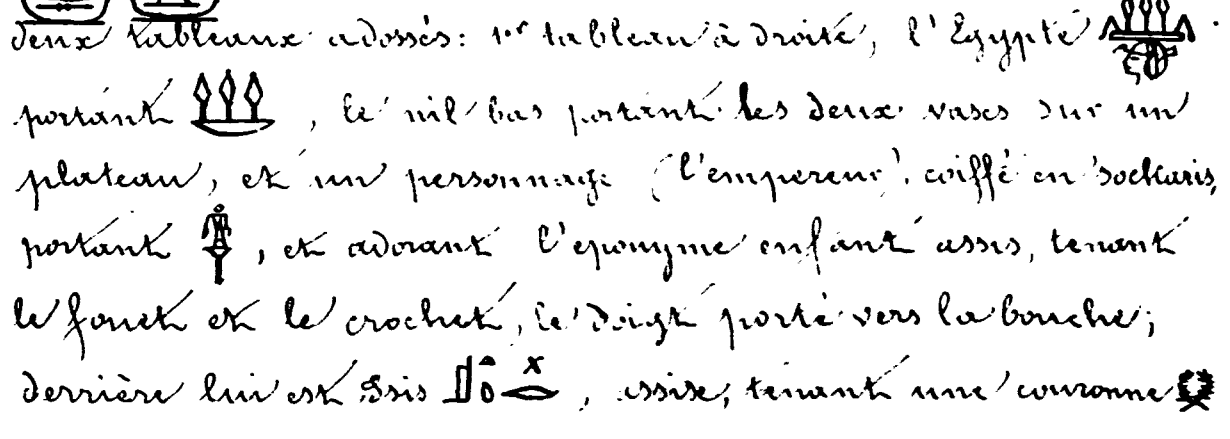 deux tableaux adossés: 1er tableau à droite, l'Egypte
portant , le nil bas portant les deux vases sur un
plateau, et un personnage (l'empereur), coiffé en Sockaris,
portant , et adorant l'eponyme enfant assis, tenant
le fouet et le crochet, le doigt porté vers la bouche;
derrière lui est Isis , assise, tenant une couronne